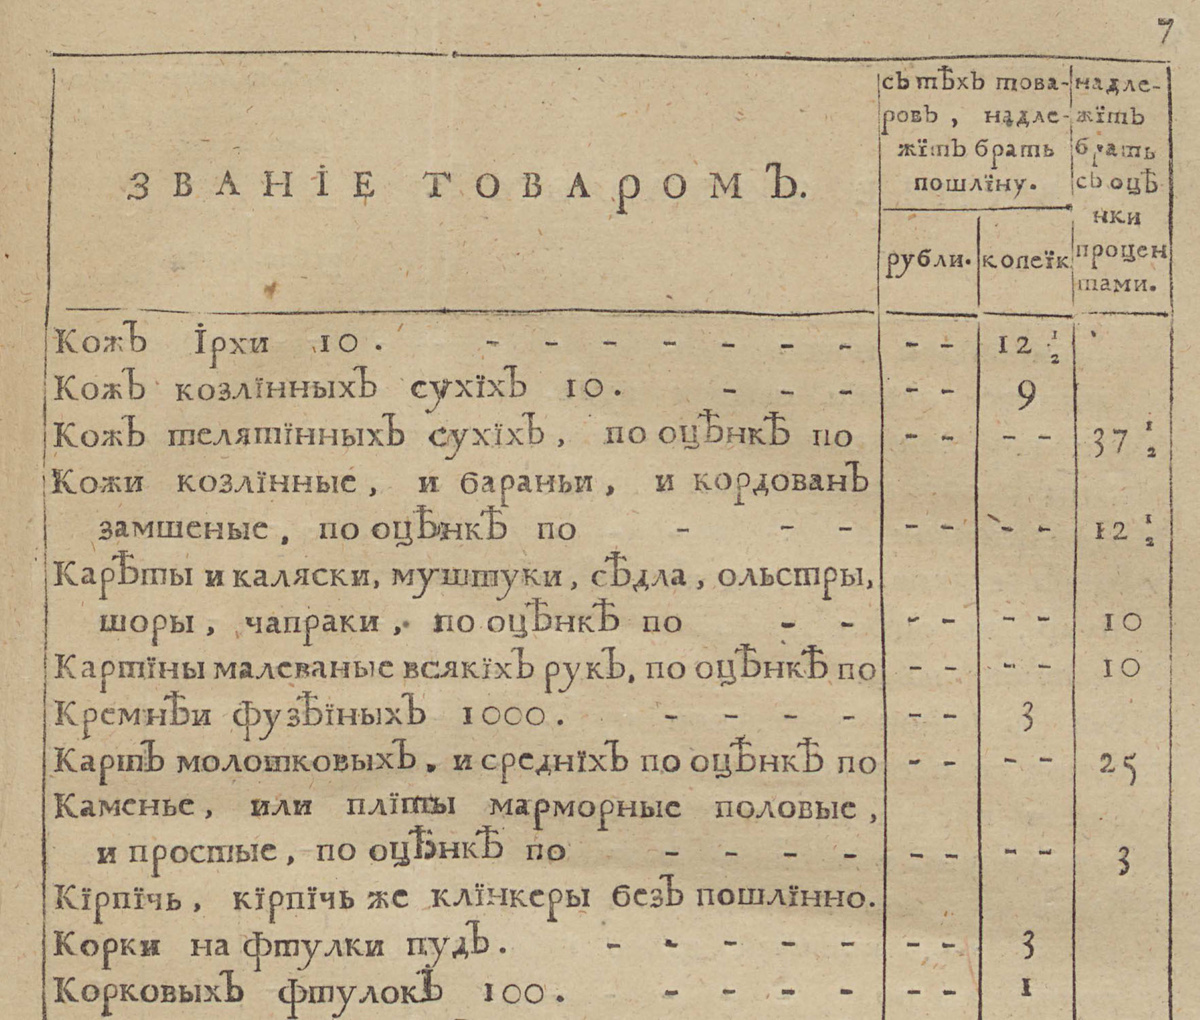 7
ЗВАНІЕ ТОВАРОМЪ.
съ тѣхъ това-
ровъ , надле-
жїтъ брать
пошлїну.
рубли. копеїк
надле-
жїтъ
брать
съ оцѣ
нки
процен
тами.
Кожъ Їрхи 10 . - - - - - - - - - 12 1/2
Кожъ козлїнныхъ сухїхъ 10 . - - - - - 9
Кожъ телятїнныхъ сухїхъ , по оцѣнкѣ по - - - - 37 1/2
Кожи козлїнные , и бараньи , и кордованъ
замшеные , по оцѣнкѣ по - - - - - - - 12 1/2
Карѣты и каляски, муштуки , сѣдла , ольстры,
шоры , чапраки , по оцѣнкѣ по - - - - - - 10
Картїны малеваные всякїхъ рукъ, по оцѣнкѣ по - - - - 10
Кремнѣи фузѣїныхъ 1000 . - - - - - - 3
Картъ молотковыхъ , и среднїхъ по оцѣнкѣ по - - - - 25
Каменье , или плїты марморные половые ,
и простые , по оцѣнкѣ по - - - - - - - - 3
Кїрпїчь , кїрпїчь же клїнкеры безъ пошлїнно.
Корки на фтулки пудъ . - - - - - - - 3
Корковыхъ фтулокъ 100 . - - - - - - 1